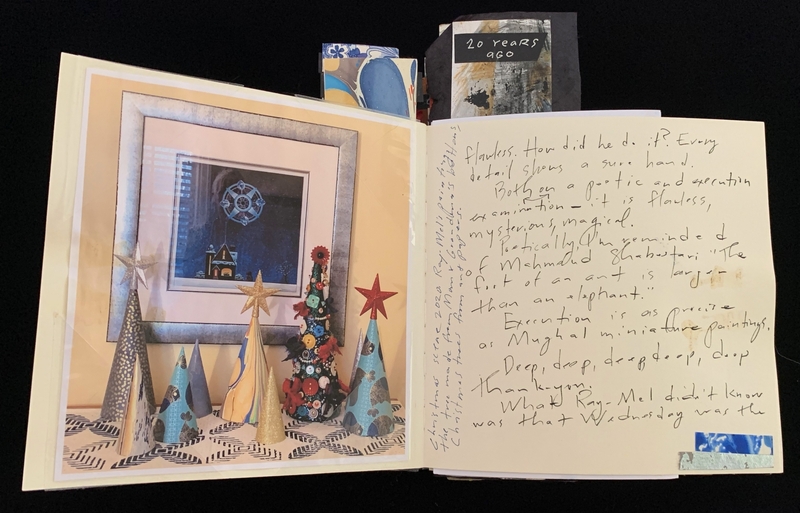 20 years
ago
Christmas scene 2020 Ray-Mel's painting,
the tree made from Mama Grandma's buttons,
Christmas trees from and papers.
flawless. How did he do it? Every
detail shows a sure hand.
Both on a poetic and execution
examination – it is flawless,
mysterious, magical.
Poetically, I'm reminded
of Mahmud Shabestari "The
foot of an ant is larger
than an elephant."
Execution is as precise
as Mughal miniature paintings.
Deep, deep, deep deep, deep
thank you.
What Ray-Mel didn't know
was that Wednesday was the